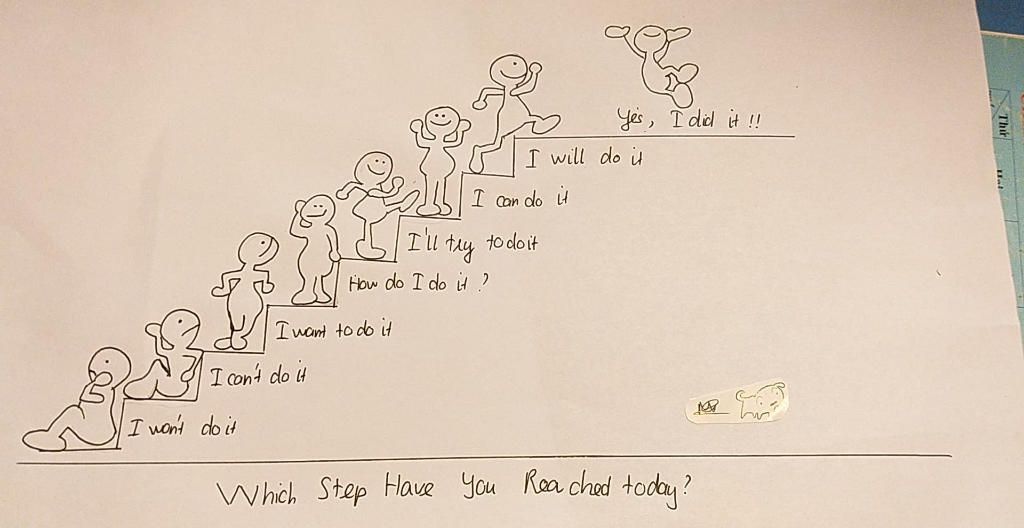 Yes, I did it !!
I will do it
I can do it
I'll try to do it
How do I do it ?
I want to do it
I can't do it
I won't do it
Which Step Have You Reached today?
Thứ